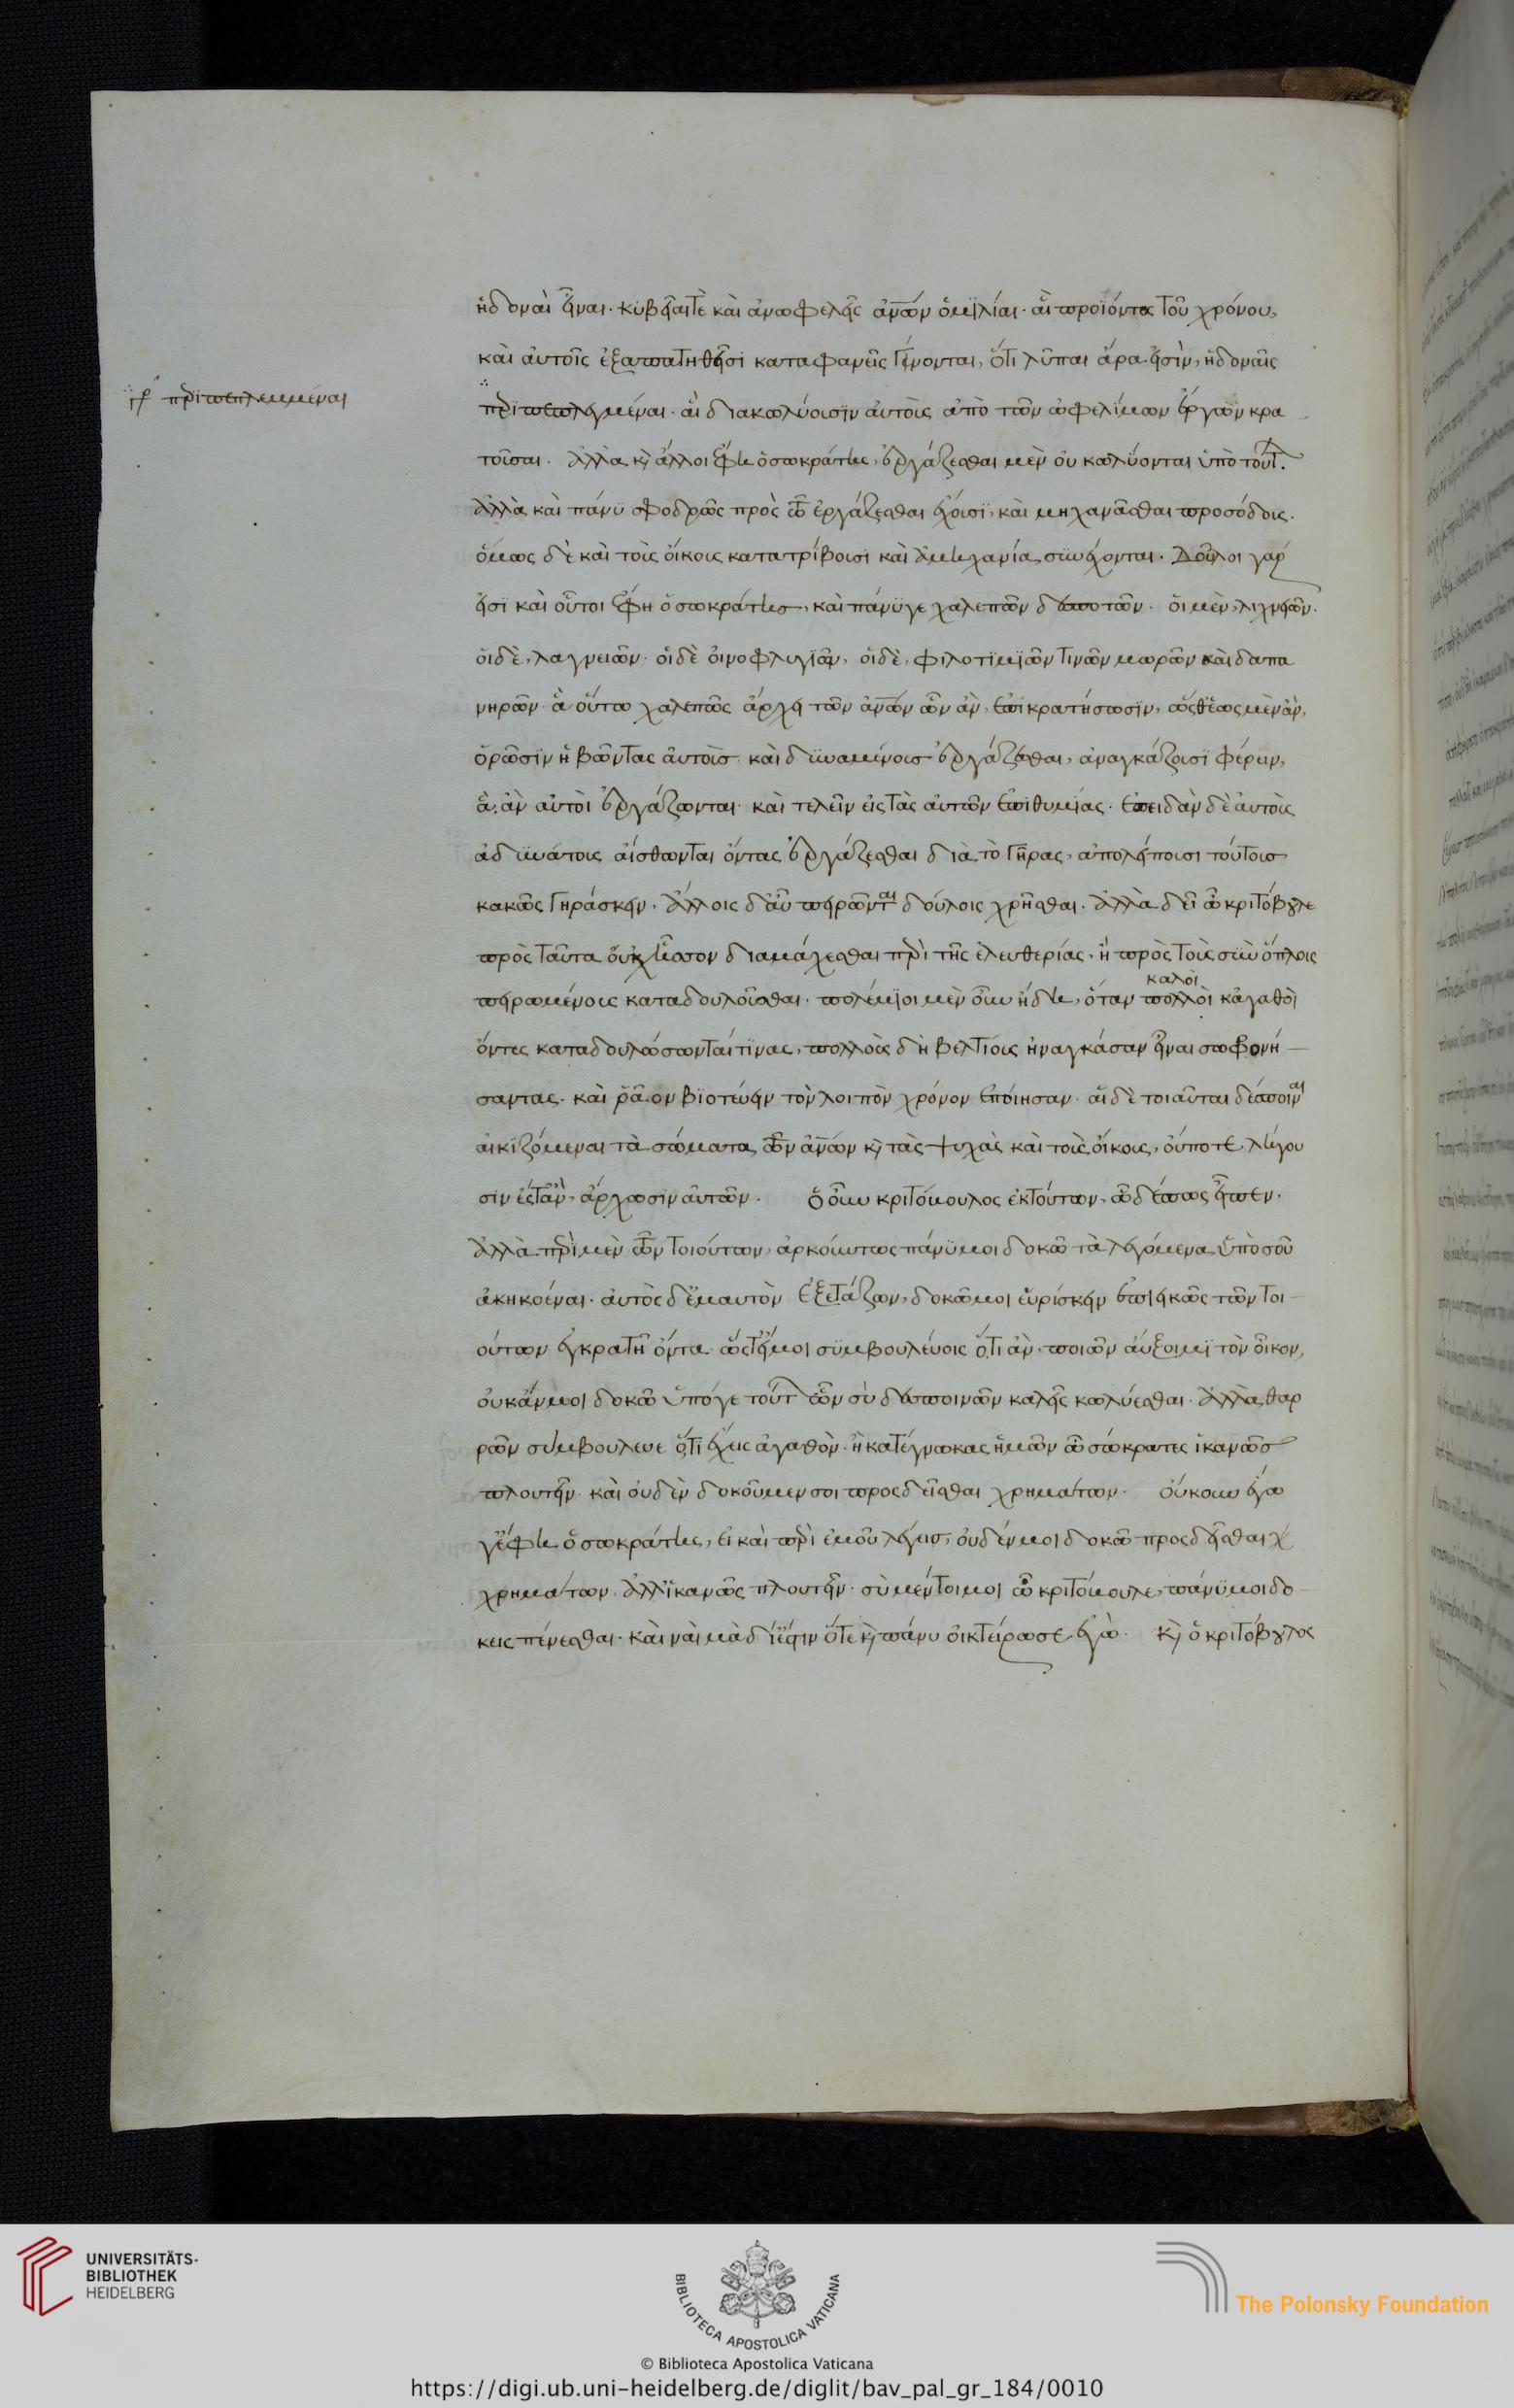 ἡδοναὶ εἶναι· κυβεῖαιτὲ καὶ ἀνωφελεῖς ἀν̅ων ὁμιλίαι· αἳ προϊόντος τοῦ χρόνου,
καὶ αὐτοῖς ἐξαπατηθεῖσι καταφανεῖς γίνονται, ὅτι λῦπαι ἄρα εἰσὶν, ἡδοναῖς
γρ περιπεπλεμμέναι
περιπεπλεγμέναι· αἳ διακωλύουσιν αὐτοὺς ἀπὸ τῶν ὠφελίμων ἔργων κρα
τοῦσαι. ἀλλὰ κὶ ἄλλοι ἔφη ὁ σωκράτης, ἐργάζεσθαι μὲν οὐ κωλύονται ὑπὸ τούτ.
ἀλλὰ καὶ πάνυ σφοδρῶς πρὸς τὸ ἐργάζεσθαι ἔχουσι, καὶ μηχανᾶσθαι προσόδους.
ὅμως δὲ καὶ τοὺς οἴκους κατατρίβουσι καὶ ἀμηχανία συνέχονται. Δοῦλοι γάρ
εἰσι καὶ οὗτοι ἔφη ὁ σωκράτης, καὶ πάνυ γε χαλεπῶν δεσποτῶν. οἱ μὲν, λιχνειῶν.
οἱ δὲ, λαγνειῶν· οἱ δὲ οἰνοφλυγιῶν, οἱ δὲ, φιλοτιμιῶν τινῶν μωρῶν καὶ δαπα
νηρῶν· ἃ οὕτω χαλεπῶς ἄρχει τῶν ἀν̅ων ὧν ἂν, ἐπικρατήσωσιν, ὥςθ' ἕως μὲν ἂν,
ὁρῶσιν ἡβῶντας αὐτοὺς καὶ δυναμένους ἐργάζεσθαι, ἀναγκάζουσι φέρειν,
ἃ ἂν αὐτοὶ ἐργάζωνται· καὶ τελεῖν εἰς τὰς αὐτῶν ἐπιθυμίας. ἐπειδὰν δὲ αὐτοὺς
ἀδυνάτους αἴσθωνται ὄντας ἐργάζεσθαι διὰ τὸ γῆρας, ἀπολείπουσι τούτους
κακῶς γηράσκειν. ἄλλοις δ' αὖ πειρῶνται δούλοις χρῆσθαι. ἀλλὰ δεῖ ὦ κριτόβουλε
πρὸς ταῦτα οὐχ ἧσσον διαμάχεσθαι περὶ τῆς ἐλευθερίας, ἢ πρὸς τοὺς σὺν ὅπλοις
πειρωμένους καταδουλοῦσθαι. πολέμιοι μὲν οὖν ἤδη, ὅταν πολλοὶ κἀγαθοὶ
καλοὶ
ὄντες καταδουλώσωνταί τινας, πολλοὺς δὴ βελτίους ἠναγκάσαν εἶναι σωφρονή
σαντας. καὶ ῥᾷον βιοτεύειν τὸν λοιπὸν χρόνον ἐποίησαν. αἱ δὲ τοιαῦται δέσποιναι
αἰκιζόμεναι τὰ σώματα τῶν ἀν̅ων κὶ τὰς ψυχὰς καὶ τοὺς οἴκους, οὔποτε λήγου
σιν ἔςτ' ἂν, ἄρχωσιν αὐτῶν. ὁ οὖν κριτόβουλος ἐκ τούτων, ὧδέ πως εἶπεν.
ἀλλὰ περὶ μὲν τῶν τοιούτων, ἀρκούντως πάνυ μοι δοκῶ τὰ λεγόμενα ὑπὸ σοῦ
ἀκηκοέναι. αὐτὸς δ' ἐμαυτὸν ἐξετάζων, δοκῶ μοι εὑρίσκειν ἐπιεικῶς τῶν τοι
ούτων ἐγκρατῆ ὄντα. ὥςτ' εἴ μοι συμβουλεύοις ὅ,τι ἂν ποιῶν αὔξοιμι τὸν οἶκον,
οὐκ ἄν μοι δοκῶ ὑπό γε τούτ ὧν σὺ δεσποινῶν καλεῖς κωλύεσθαι. ἀλλὰ θαρ
ρῶν συμβούλευε ὅ,τι ἔχεις ἀγαθὸν. ἢ κατέγνωκας ἡμῶν ὦ σώκρατες ἱκανῶς
πλουτεῖν καὶ οὐδὲν δοκοῦμεν σοι προσδεῖσθαι χρημάτων. οὔκουν ἔγω
γ' ἔφη ὁ σωκράτης, εἰ καὶ περὶ ἐμοῦ λέγεις, οὐδέν μοι δοκῶ προςδεῖσθαι χ
χρημάτων. ἀλλ' ἱκανῶς πλουτεῖν. σὺ μέντοι μοι ὦ κριτόβουλε, πάνυ μοι δο
κεις πένεσθαι. καὶ ναὶ μὰ δί' ἔςτιν ὅτε κὶ πάνυ οἰκτείρω σε ἐγὼ. κὶ ὁ κριτόβουλος
UNIVERSITÄTS-
BIBLIOTHEK
HEIDELBERG
BIBLIOTECA APOSTOLICA VATICANA
The Polonsky Foundation
© Biblioteca Apostolica Vaticana
https://digi.ub.uni-heidelberg.de/diglit/bav_pal_gr_184/0010